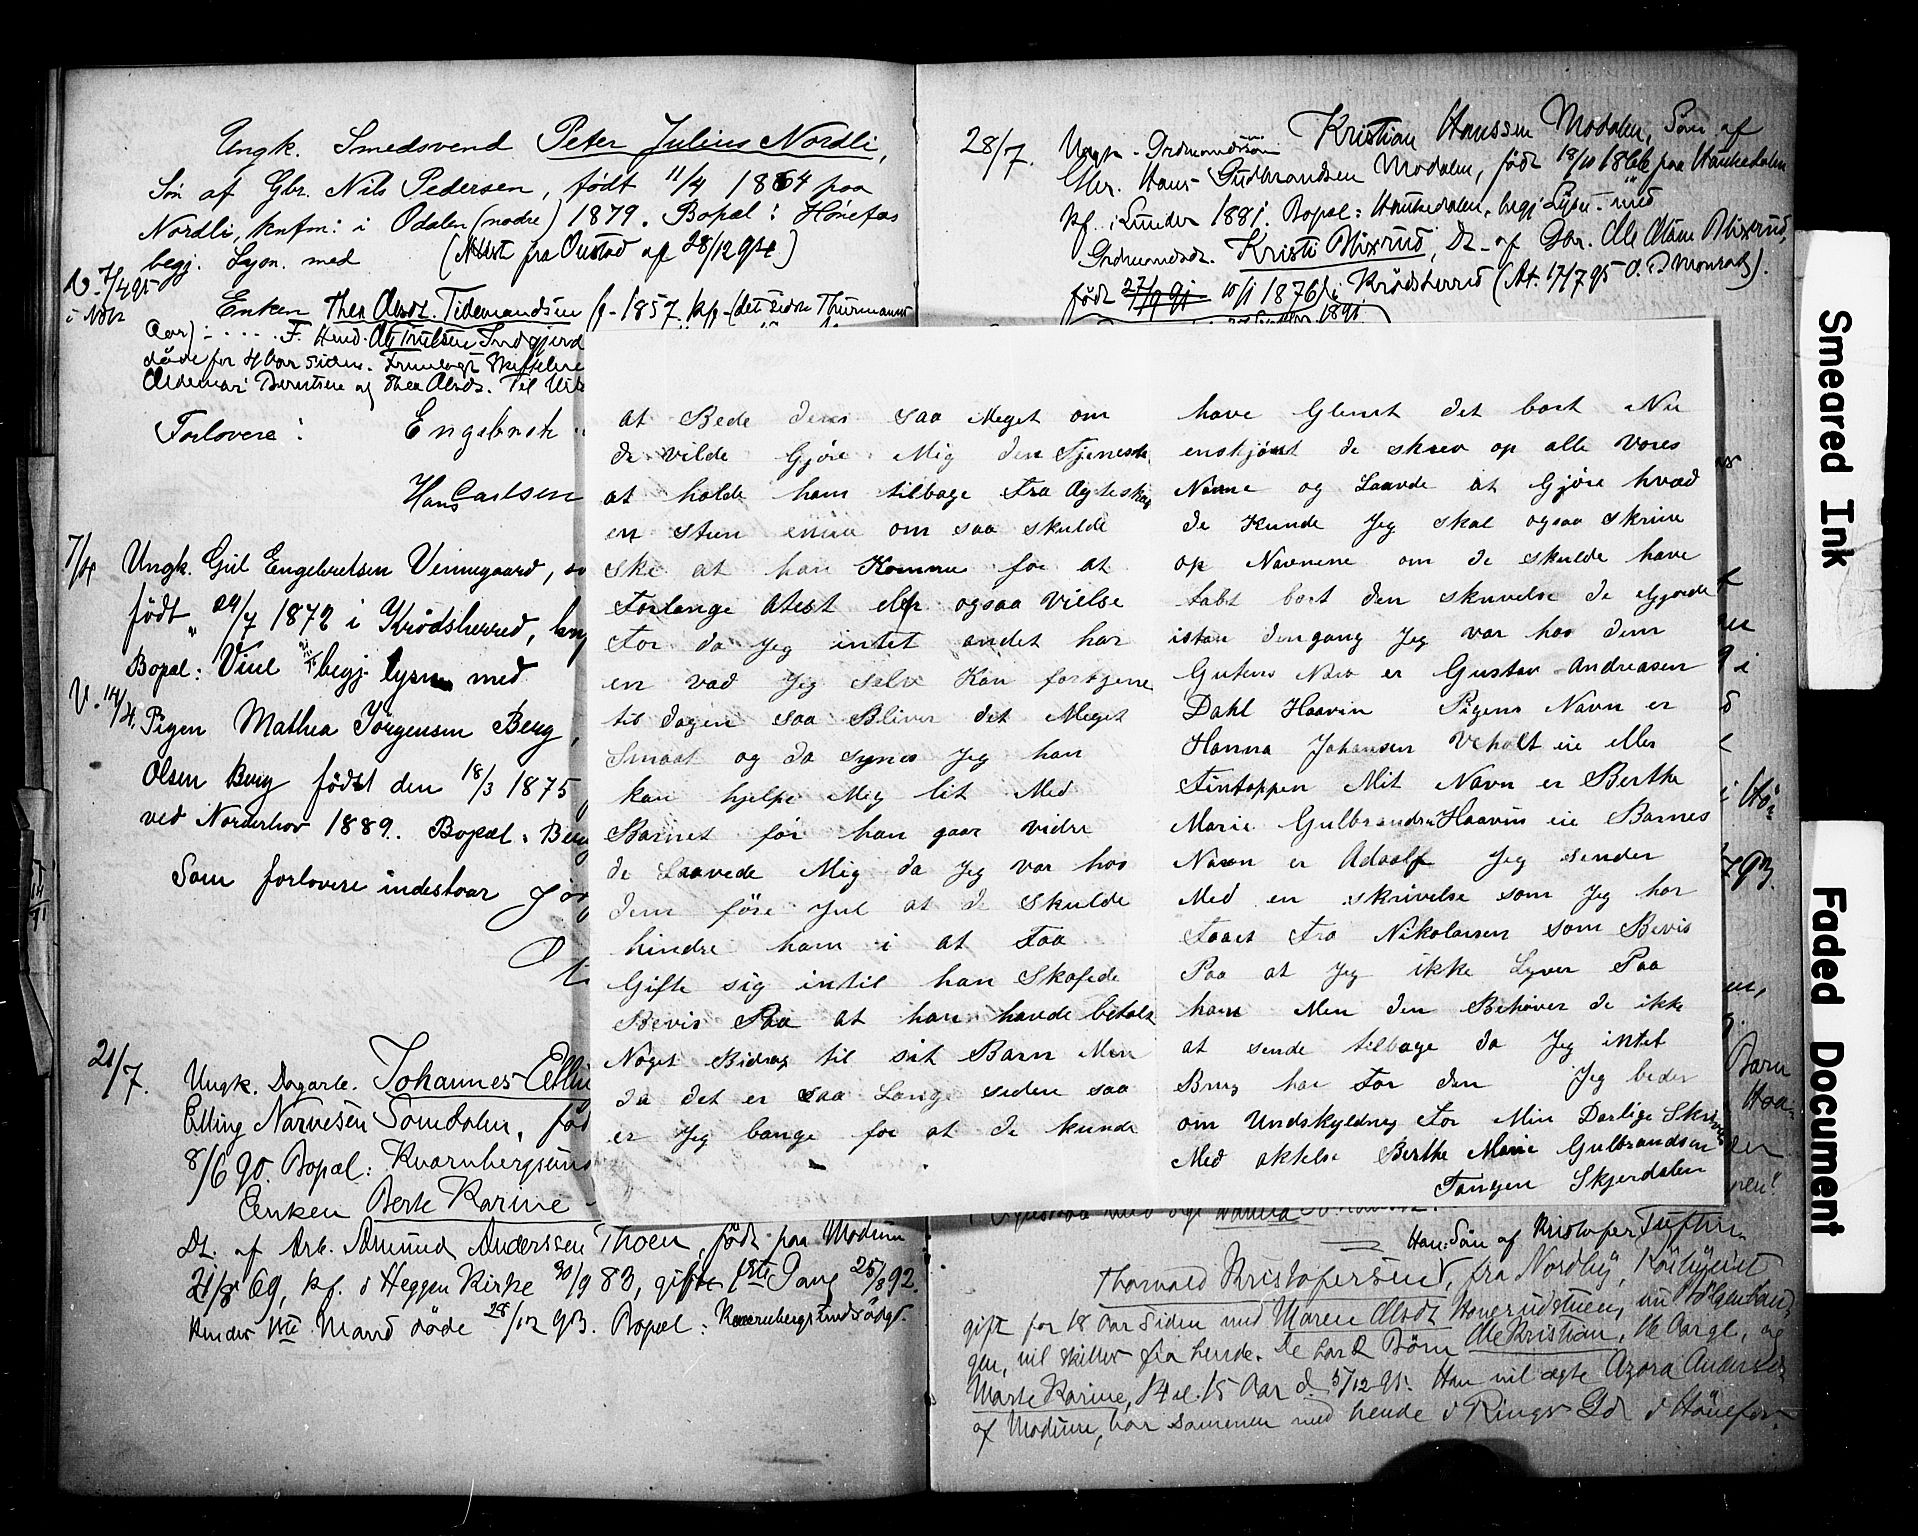 Ungk. Smedsvend Peter Julius Nordli,
Søn af Gbr. Nils Pedersen, født 11/4 1864 paa
Nordli, knfm: i Odalen (nodre) 1879. Bopæl: Hönefos
begj. Lysn. med (Attest fra Oustad af 28/12 94)
V. 7/4 95
Enken Thea Olsdt. Tidemandsen f. 1857 kf. (det sidste Thurmanns
Aar): .... F. Husb. Ole Trulsen
døde for 4 Aar siden.
og Thea Olsdt. Til
Forlovere: Engebret
Hans Carlsen
7/4 Ungk. Gul Engebretsen Vennegaard, sø
født 29/7 1872 i Krødsherred,
Bopæl: Viul begj. lysn. med
V. 14/4. Pigen Mathea Jörgensen Berg,
Olsen Berg født den 18/3 1875
ved Norderhov 1889. Bopæl: Berg
Som forlovere indestaar Jör
21/7. Ungk. Dagarb. Johannes Ellin
Elling Narvesen Somdalen, fød
8/6 90. Bopæl: Kvarnbergsund
Enken Berte Karine
Dt. af Arb. Amund Anderssen Thoen, født paa Modum
69, kf. i Heggen Kirke 30/9 83, gift 1ste Gang 25/8 92.
Hendes 1ste Mand døde 28/12 93. Bopæl: Kvernbergsundsødegd.
28/7. Ungk. Grdmandssøn Kristian Hanssen Modalen, Søn af
Gbr. Hans Gudbrandsen Modalen, født 18/11 1866 paa Haukedalen
kf. i Lunder 1881. Bopæl: Haukedalen, begj. Lysn. med
Grdmandsdt. Kristi Blixrud, Dt. af Gbr. Ole Olsen Blixrud,
født 27/9 91 10/1 1876 i Krödsherred (At. 17/7 95 O. P. Monrad).
1891
at Bede dem saa Meget om
de vilde Gjöre Mig den Tjeneste
at holde ham tilbage Fra Ægteskap
en stun enuu om saa skulde
ske at han Komme for at
Forlange Atest eler ogsaa Vielse
For da Jeg intet andet har
en vad Jeg selv Kan fortjene
til dagen saa Bliver det Meget
Smaat og da synes Jeg han
kan hjelpe Mig lit Med
Barnet för han gaar vidre
de Laavede Mig da Jeg var hos
dem före Jul at de Skulde
hindre ham i at Faa
Gifte sig intil han Skafede
Bevis Paa at han havde betalt
Noget Bidrag til sit Barn Men
da det er saa Lange siden saa
er Jeg bange for at de kunde
have Glemt det bort Nu
enskjönt de skrev op alle Vores
Navne og Laavde at Gjöre hvad
de Kunde Jeg skal ogsaa skrive
op Navnene om de skulde have
tabt bort den skrivelse de Gjorde
istan dengang Jeg var hos dem
Gutens Nav er Gustav Andreasen
Dahl Haavin Pigens Navn er
Hanna Johansen Veholt eie eller
Tintoppen Mit Navn er Berthe
Marie Gulbrandsen Haavin eie Barnes
Navn er Adoolf Jeg sender
Med en skrivelse som Jeg har
Faaet Fra Nikolaisen som Bevis
Paa at Jeg ikke Lyver Paa
ham Men den Behöver de ikke
at sende tilbage da Jeg intet
Brug har For den Jeg beder
om Undskyldning For Min Darlige Skrivelse
Med aktelse Berthe Marie Gulbrandsen
Tangen Skjerdalen
Han: Søn af Kristofer Tufthn
Thorvald Kristofersen, fra Nordby,
gift for 18 Aar siden med Maren Olsdt Haverudstuen, nu
gen, vil skilles fra hende. De har 2 Börn Ole Kristian, 16 Aar gl., og
Marte Karine, 14 al. 15 Aar d. 5/12 95. Han vil ægte Azora Anderse
af Modum, bor sammen med hende i Rings Gd i Hönefos
Smeared Ink
Faded Document